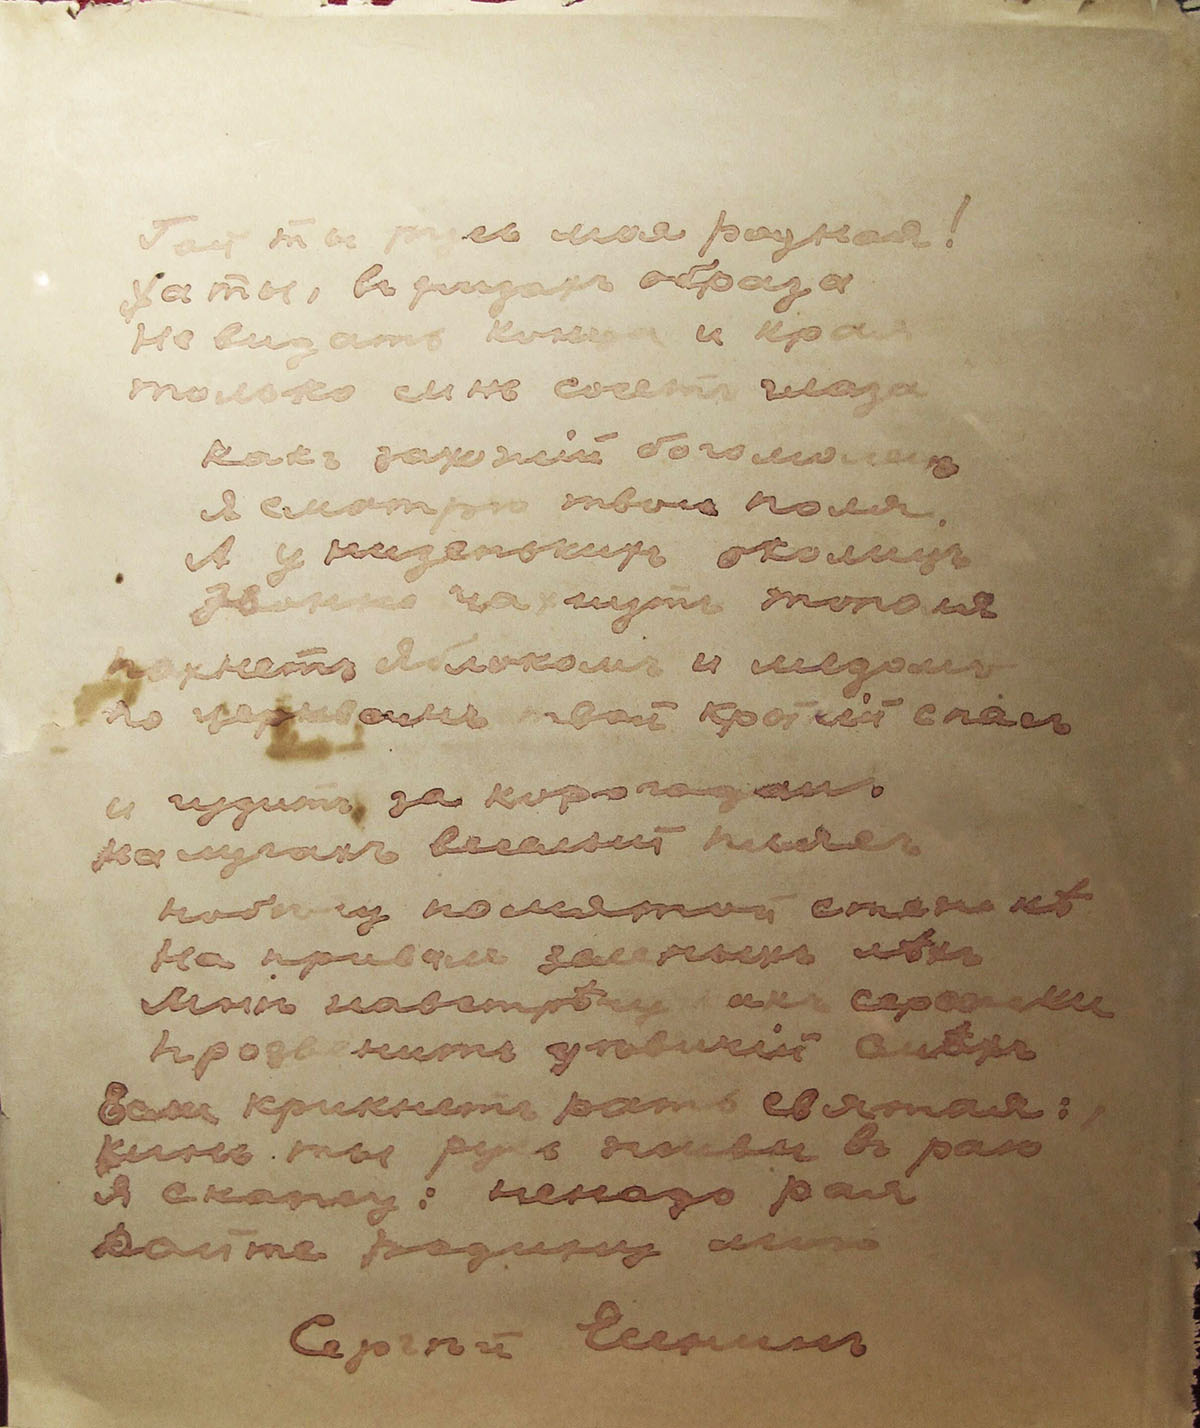 Гой ты русь моя родная!
Хаты, въ ризахъ образа
Не видать конца и края
только синь сосетъ глаза
Какъ захожий богомолецъ
Я смотрю твои поля.
А у низенькихъ околицъ
Звонно чахнутъ тополя
пахнетъ яблокомъ и медомъ
по церквамъ твой кроткій спасъ
и гудитъ за корогодамъ.
На лугахъ веселый плясъ
побегу по мятой стежкѣ
На приволь зеленыхъ лѣхъ
Мнѣ навстрѣчу какъ сережки
прозвенитъ дѣвичій смѣхъ
Если крикнетъ рать святая:
Кинь ты русь живи въ раю
Я скажу: ненадо рая
Дайте родину мою
Сергѣй Есенинъ